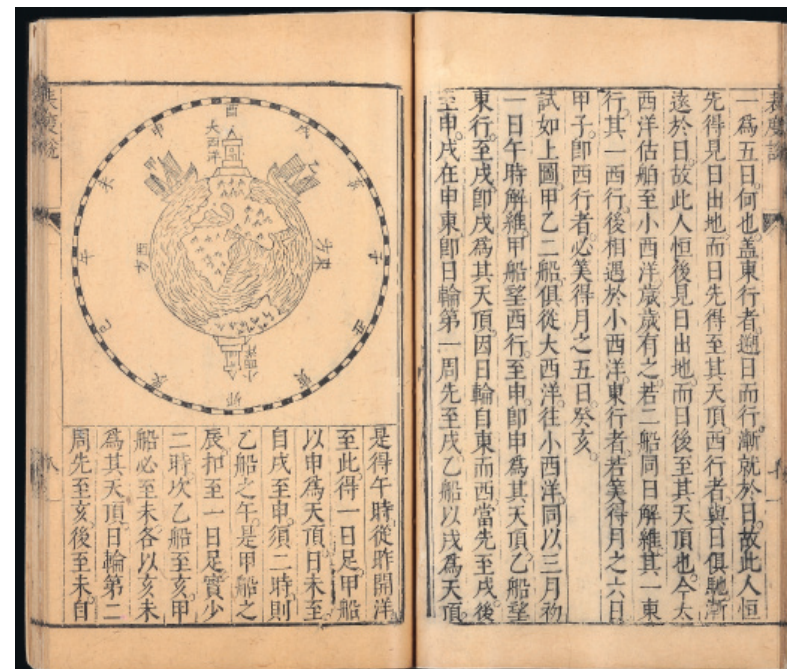 表度說
一爲五日何也。蓋東行者遡日而行。漸就於日。故此人恒
先得見日出地而日先得至其天頂西行者與日俱馳漸
遠於日。故此人恒後見日出地。而日後至其天頂也。今太
西洋估舶至小西洋。歲歲有之。若二船同日解維其一東
行。其一西行。後相遇於小西洋。東行者。若筭得月之六日
甲子。卽西行者。必筭得月之五日癸亥。
試如上圖。甲乙二船。俱從大西洋。往小西洋。同以三月初
一日午時解維。甲船望西行。至申。卽申爲其天頂。乙船望
東行。至戌。卽戌爲其天頂。因日輪自東而西。當先至戌。後
至申。戌在申東。卽日輪第一周先至戌。乙船以戌爲天頂。
表度說
酉
戌
亥
子
丑
寅
卯
辰
巳
午
未
申
大西洋
甲
乙
東方
西方
小西洋
是得午時。從昨開洋
至此得一日足。甲船
以申爲天頂。日未至。
自戌至申。須二時。則
乙船之午。是甲船之
辰。扣至一日足。實少
二時。次乙船至亥。甲
船必至未。各以亥未
爲其天頂。日輪第二
周。先至亥。後至未。自